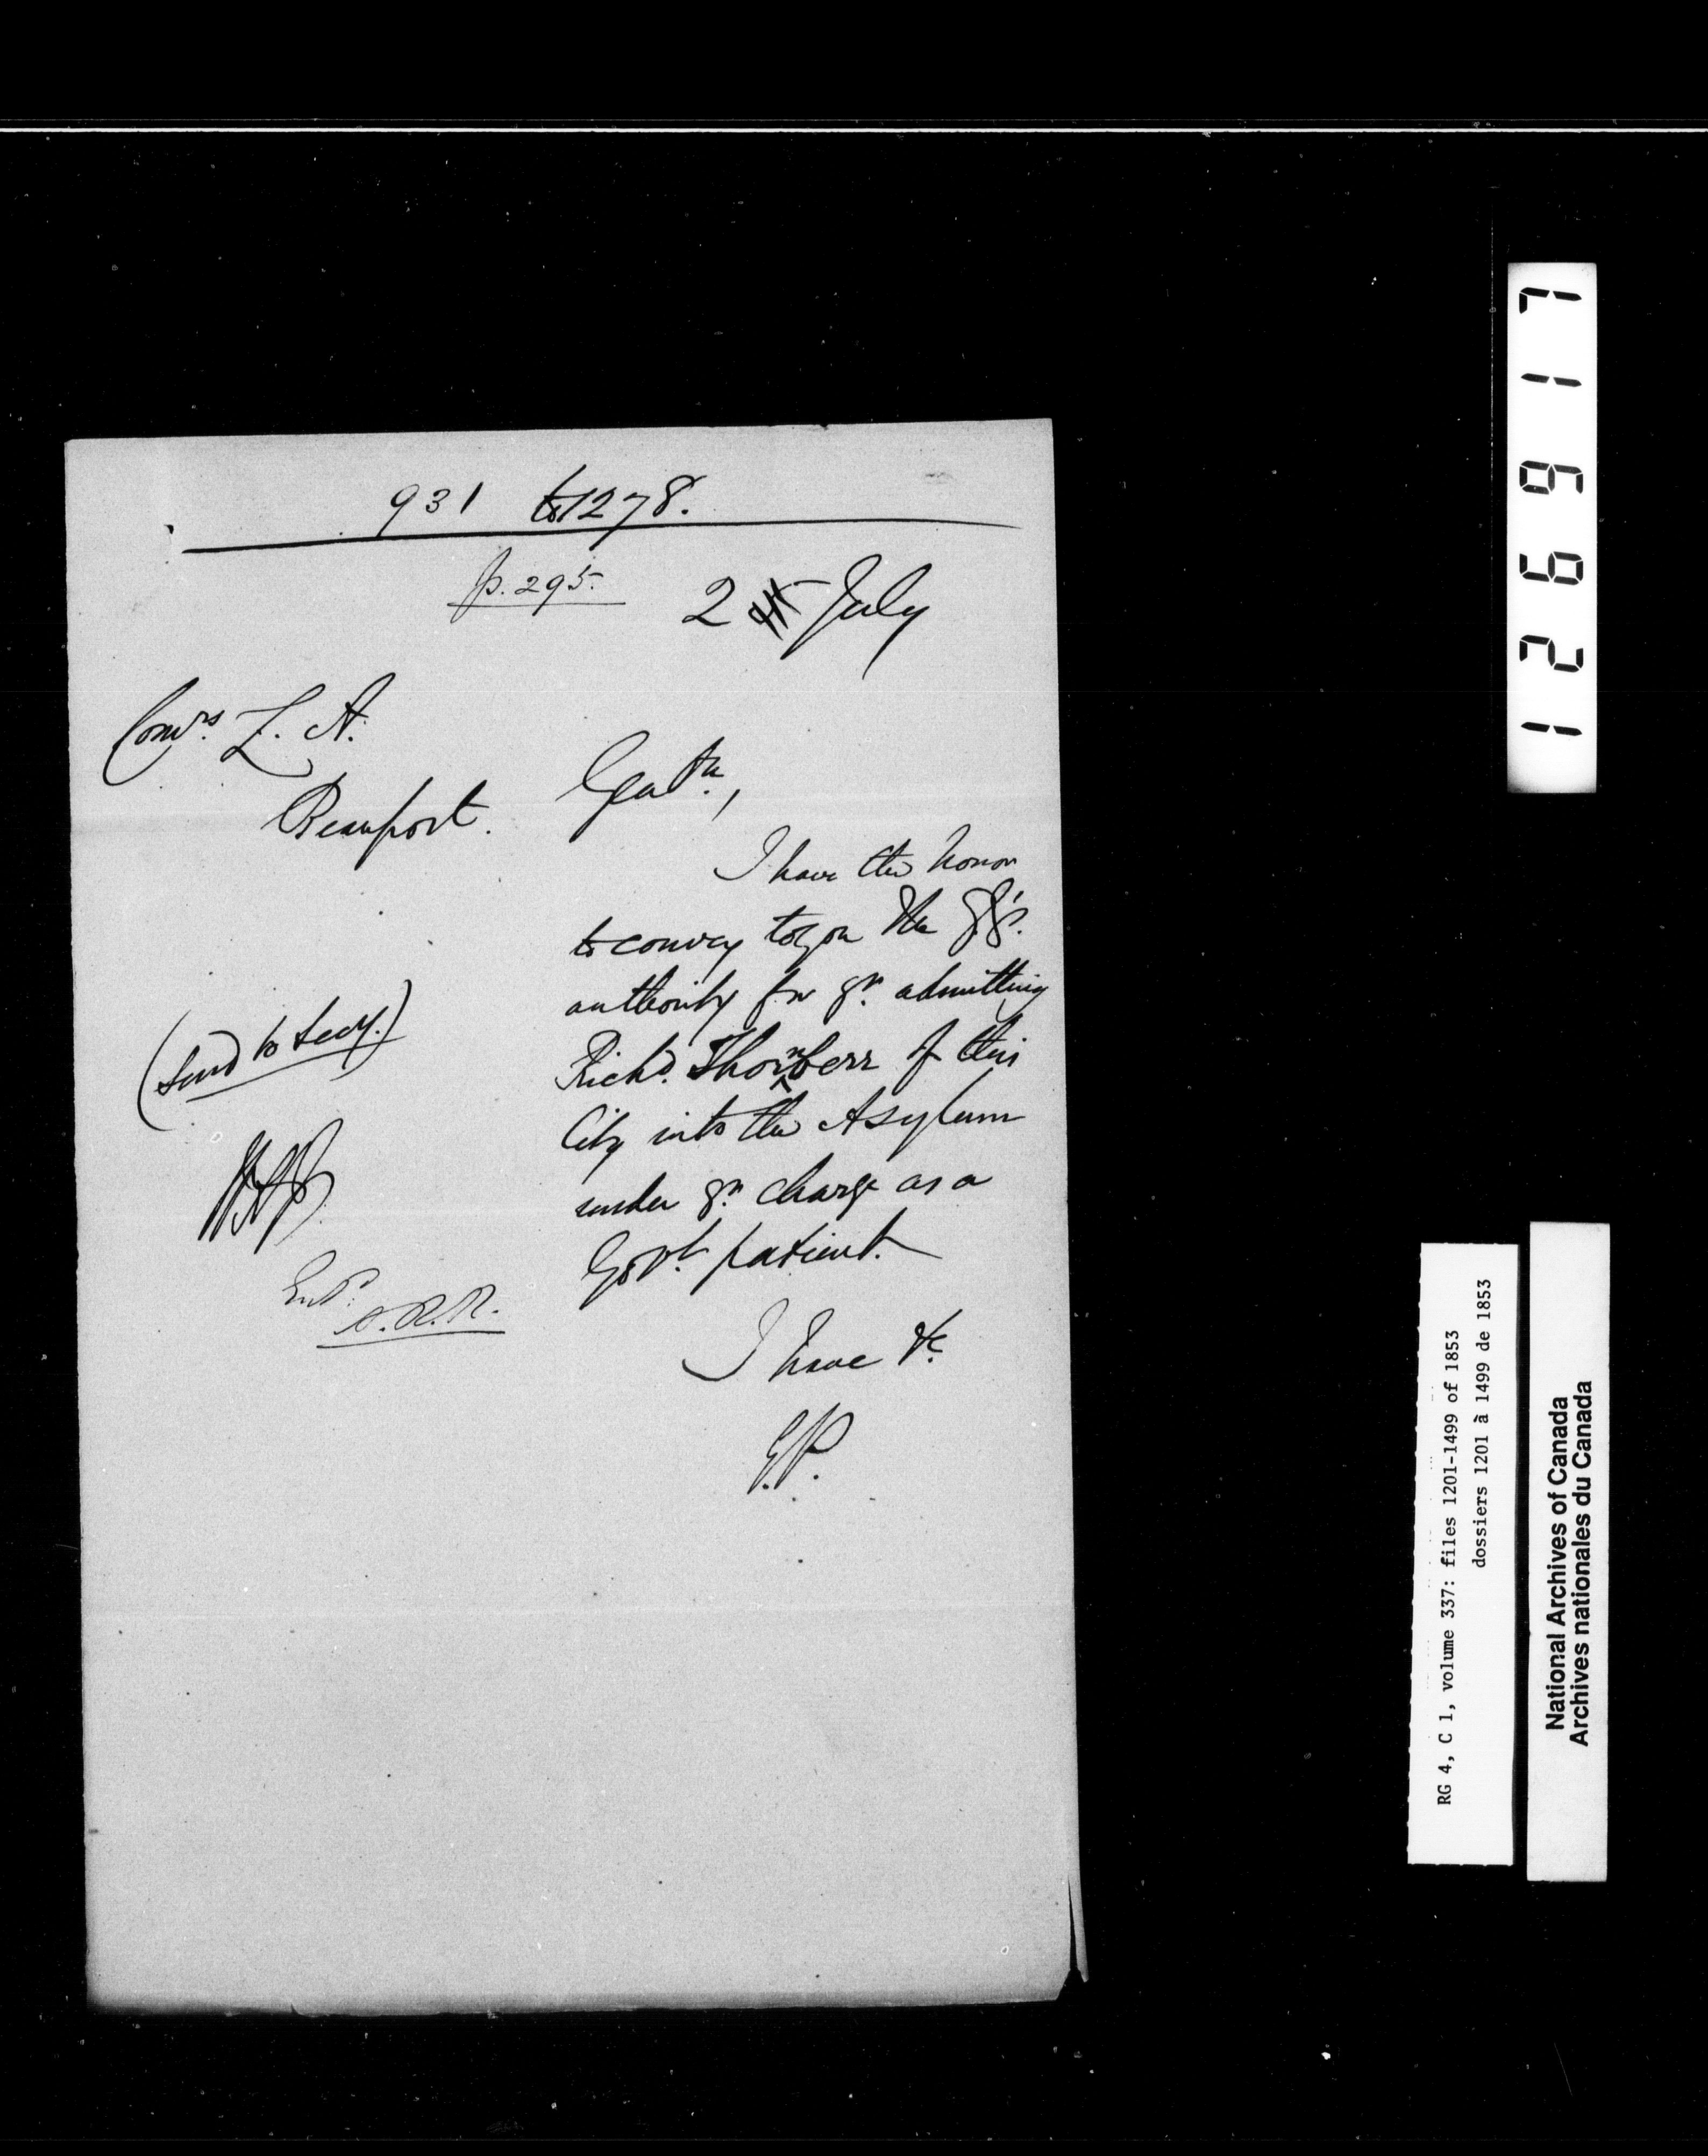 931 to 1278.
p. 295.
2 July
Comrs. L. A.
Beauport.
Gentn.,
I have the honor
to convey to you the G.G's.
authority for yr. admitting
Richd. Thornberr of this
City into the Asylum
under yr. charge as a
Govt. patient.
I have &c.
E.P.
(Send to Secy.)
Entd.
126917
RG 4, C 1, volume 337: files 1201-1499 of 1853
dossiers 1201 à 1499 de 1853
National Archives of Canada
Archives nationales du Canada